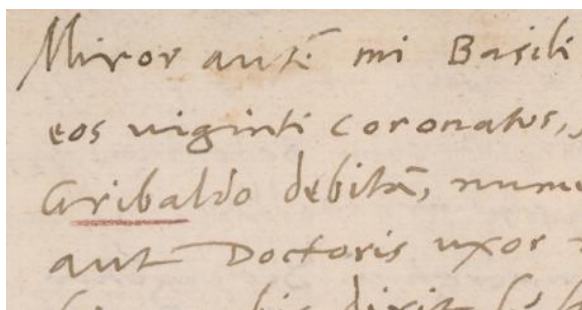 Miror autē mi Basili
eos uiginti coronatus,
Gribaldo debitā,
aut Doctoris uxor
dixit